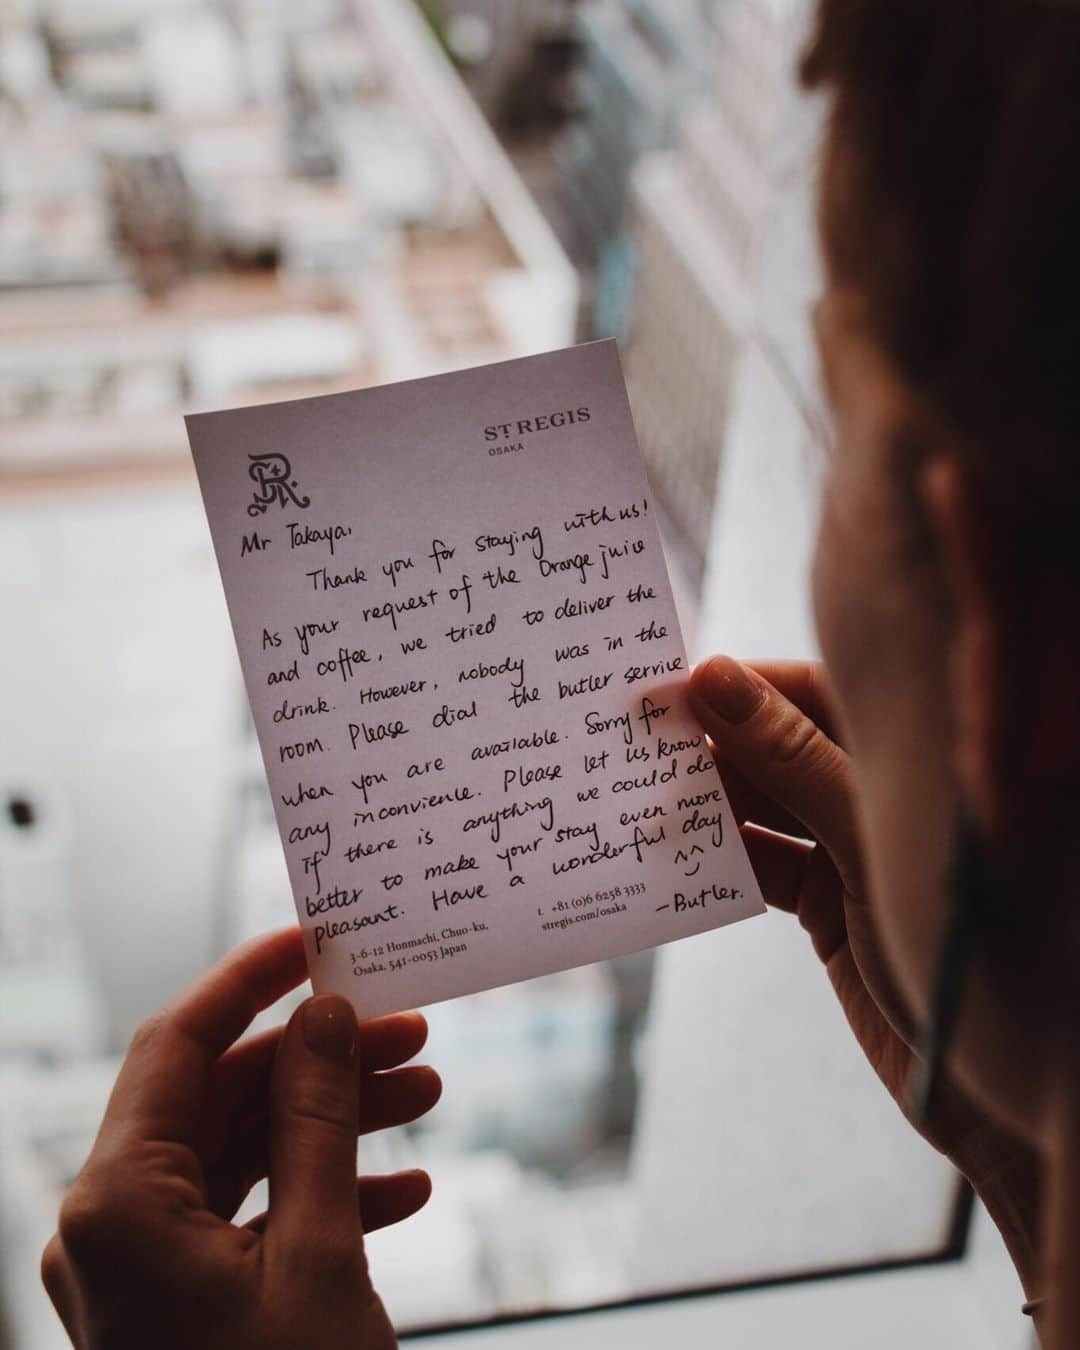 ST REGIS
OSAKA
R
Mr Takaya,
Thank you for staying with us!
As your request of the Orange juice
and coffee, we tried to deliver the
drink. However, nobody was in the
room. Please dial the butler service
when you are available. Sorry for
any inconvience. Please let us know
if there is anything we could do
better to make your stay even more
pleasant. Have a wonderful day
-Butler.
3-6-12 Honmachi, Chuo-ku,
Osaka, 541-0053 Japan
t. +81 (0)6 6258 3333
stregis.com/osaka